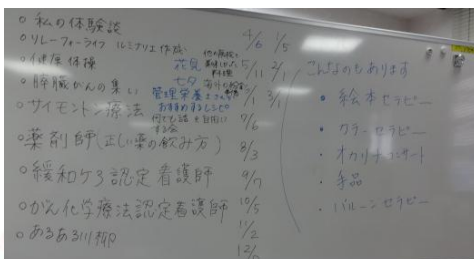 ○ 私の体験談
○ リレーフォーライフ ルミナリエ作成
○ 健康体操
○ 膵臓がんの集い
○ サイモントン療法
○ 薬剤師(正しい薬の飲み方)
○ 緩和ケア認定看護師
○ がん化学療法認定看護師
○ あるある川柳
花見
七夕
管理栄養士さんの
おすすめするレシピ
何でも話を自由に
する会
4/6 1/5
5/11 2/1
3/1
7/6
8/3
9/7
10/5
11/2
12/
こんなのもあります
・ 絵本セラピー
・ カラーセラピー
・ オカリナコンサート
・ 手品
・ バルーンセラピー